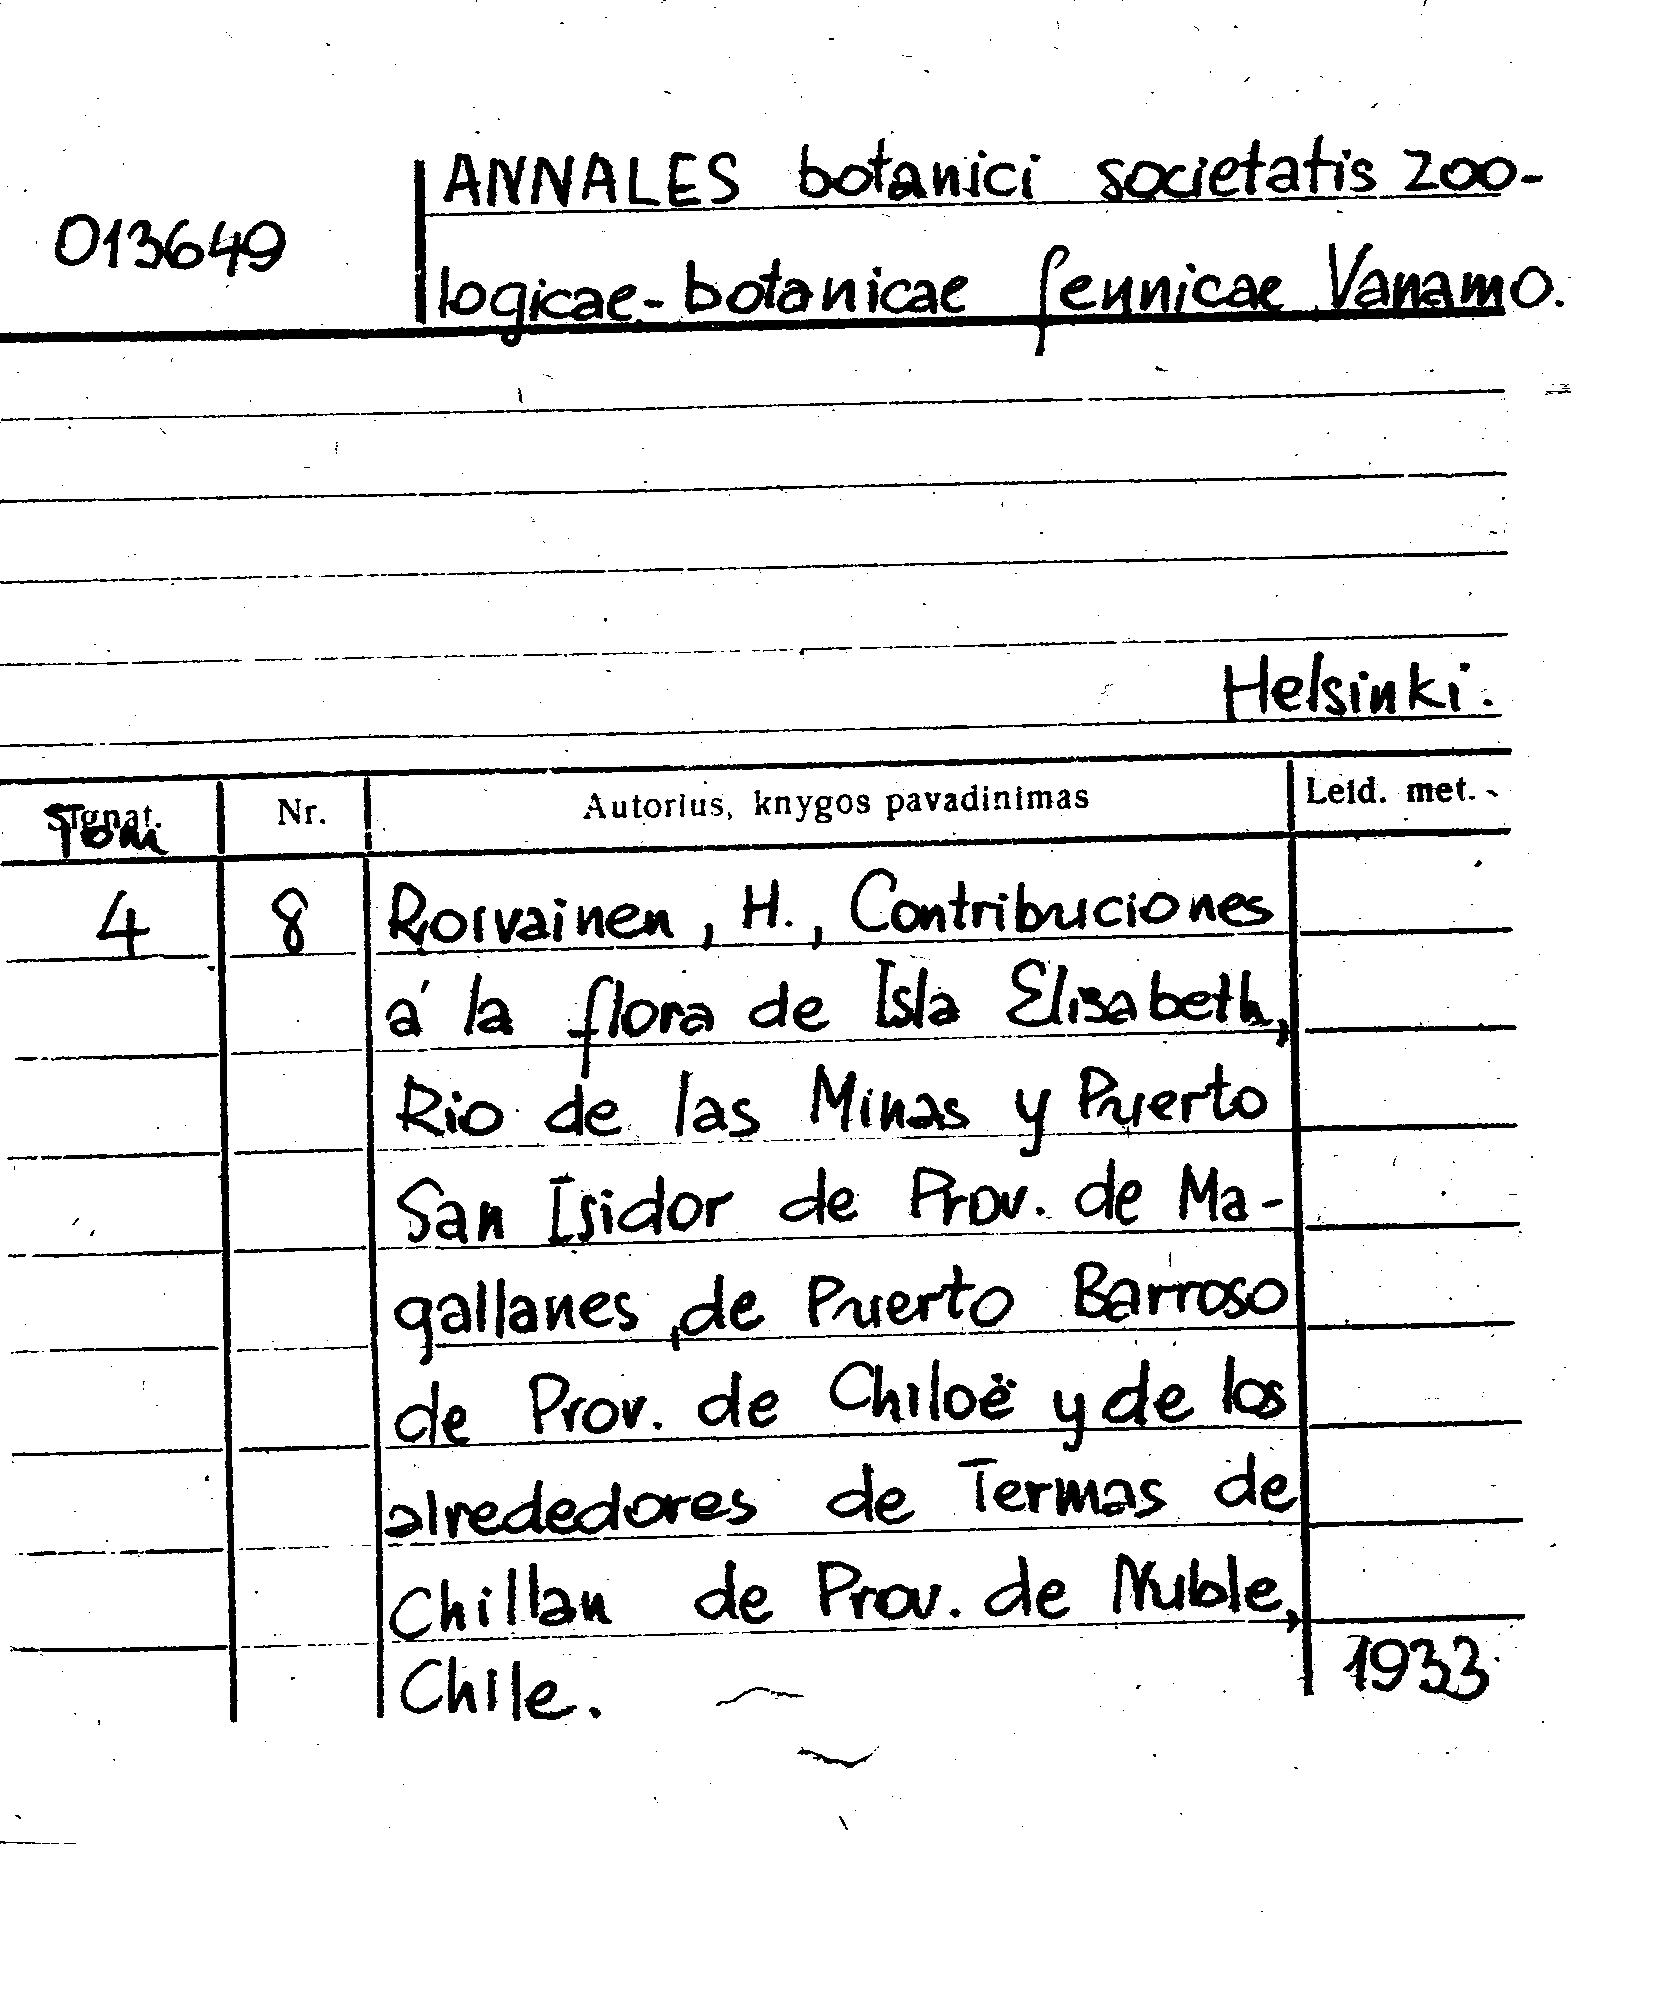 ANNALES botanici societatis zoo-
013649
logicae-botanicae fennicae Vanamo.
Helsinki.
Tom Nr. Autorius, knygos pavadinimas Leid. met.
4 8 Roivainen, H., Contribuciones
á la flora de Isla Elisabeth,
Rio de las Minas y Puerto
San Isidor de Prov. de Ma-
gallanes, de Puerto Barroso
de Prov. de Chiloë y de los
alrededores de Termas de
Chillan de Prov. de Nuble,
Chile. 1933